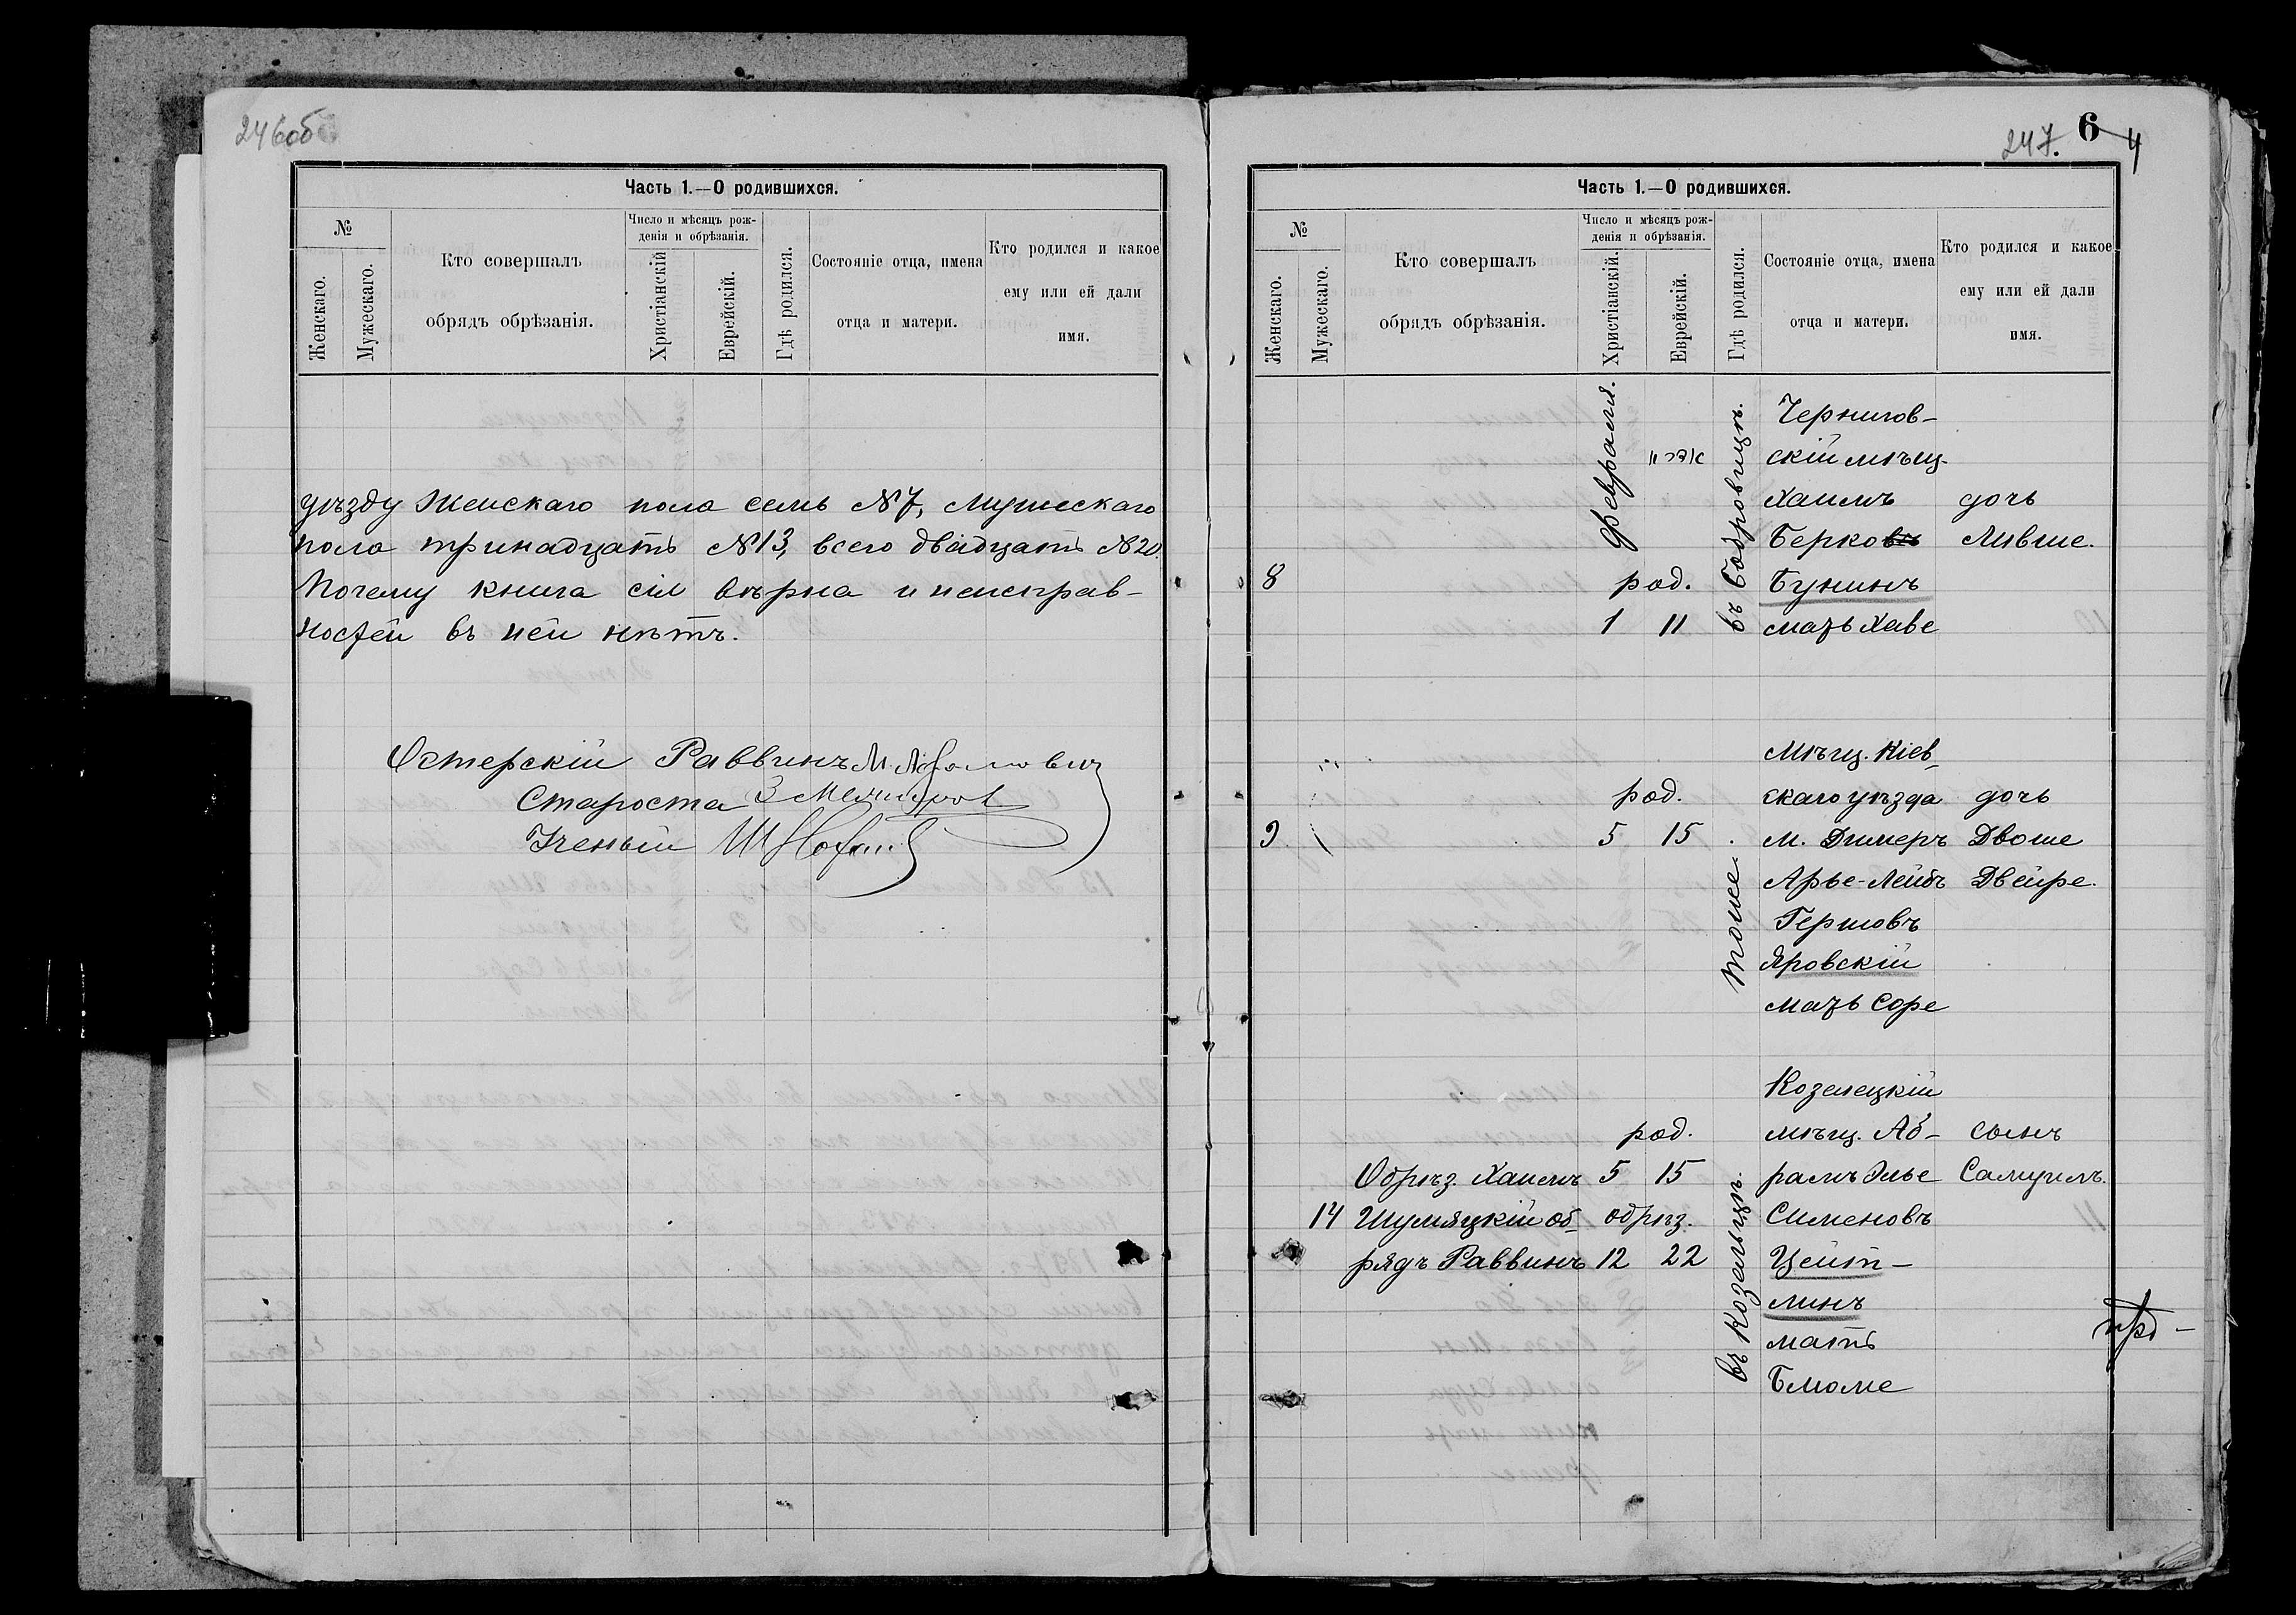 246об
Часть 1.—О родившихся.
№
Женскаго.
Мужескаго.
Кто совершалъ
обрядъ обрѣзанія.
Число и мѣсяцъ рож-
денія и обрѣзанія.
Христіанскій
Еврейскій.
Гдѣ родился.
Состояніе отца, имена
отца и матери.
Кто родился и какое
ему или ей дали
имя.
уѣзду Женскаго пола семь №7, Мужескаго
пола тринадцать №13, всего двадцать №20.
Почему книга сія вѣрна и неисправ-
ностей въ ней нѣтъ.
Остерскій Раввинъ М.
Староста З
Ученый Ш
247. 6 4
Часть 1.—О родившихся.
№
Женскаго.
Мужескаго.
Кто совершалъ
обрядъ обрѣзанія.
Число и мѣсяцъ рож-
денія и обрѣзанія.
Христіанскій.
Еврейскій.
Гдѣ родился.
Состояніе отца, имена
отца и матери.
Кто родился и какое
ему или ей дали
имя.
8
Февраля.
род.
1 11
въ Бобровицѣ.
Чернигов-
скій мѣщ.
Хаимъ
Берковъ
Бунинъ
мать Хаве
дочь
Ливше.
9
род.
5 15
тоже
Мѣщ. Кіев-
скаго уѣзда
м. Димеръ
Арье-Лейбъ
Гершовъ
Яровскій
мать Соре
дочь
Двоше
Двейре.
14
Обрѣз. Хаимъ
Шумяцкій об-
рядъ Раввинъ
род.
5 15
обрѣз.
12 22
въ Козельцѣ.
Козелецкій
мѣщ. Аб-
рамъ Элье
Сименовъ
Цейт-
линъ
мать
Блюме
сынъ
Самуилъ.